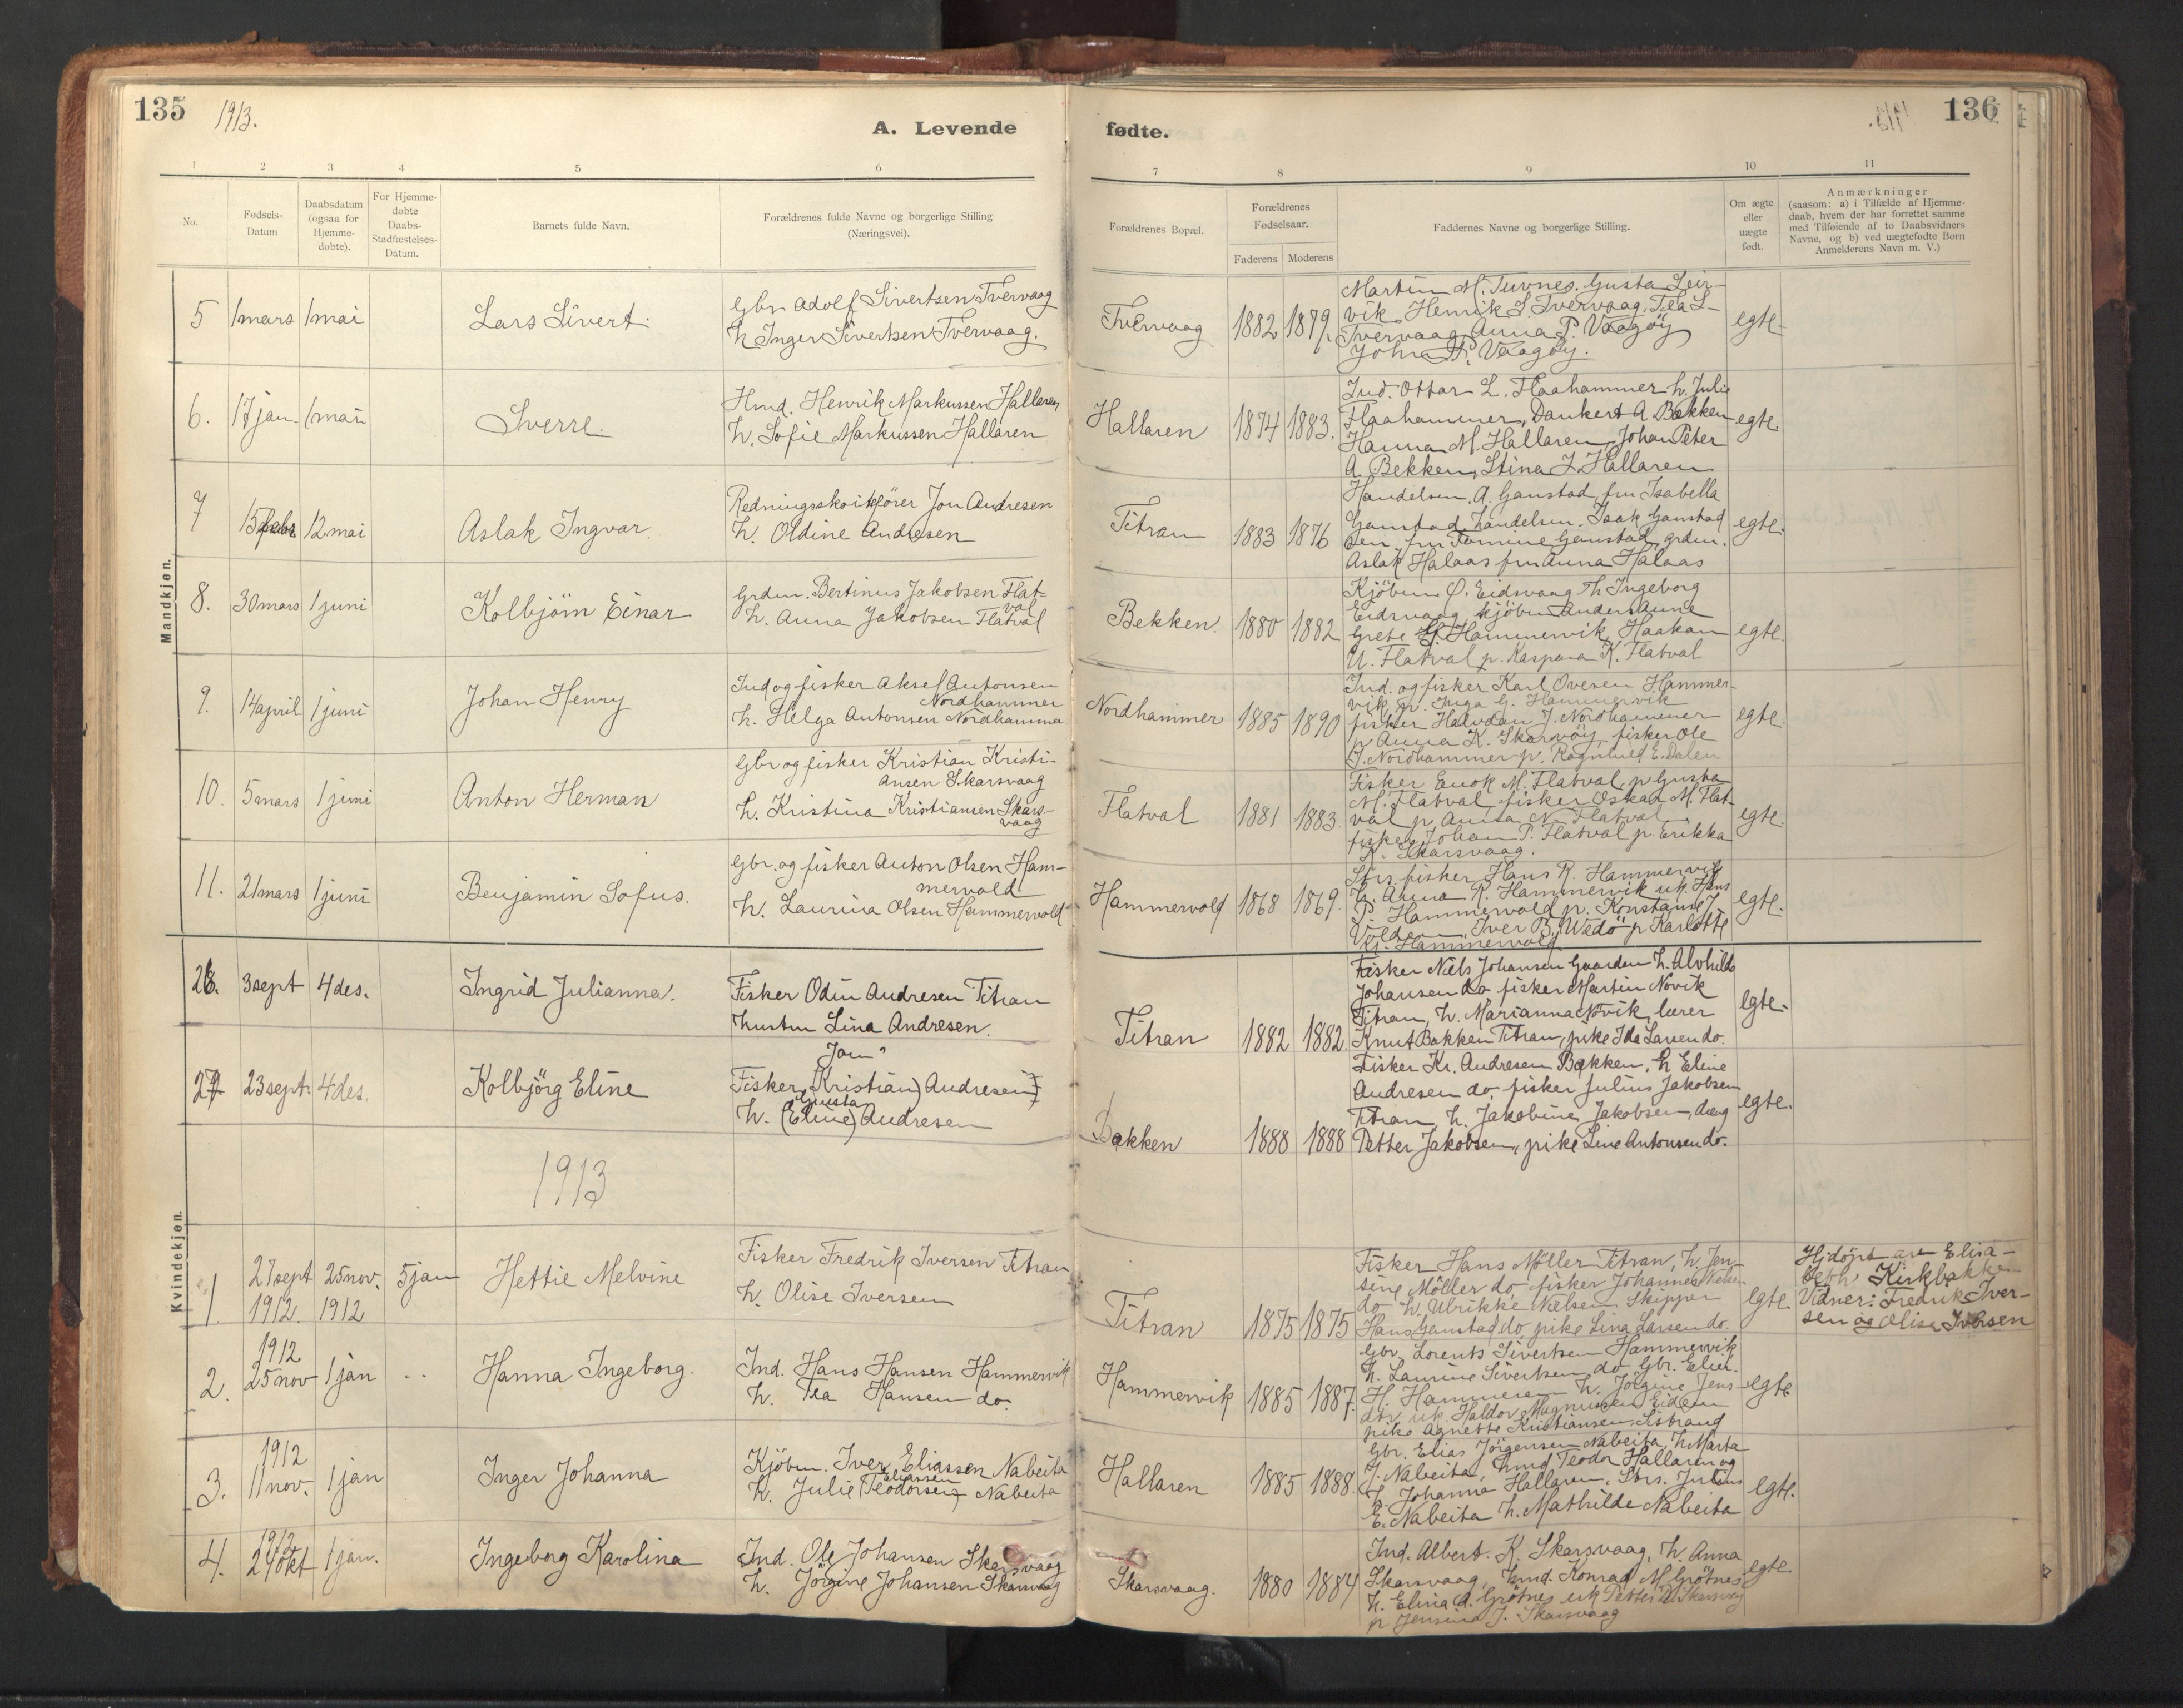 135 1913.
A. Levende
1 2 3 4 5 6
No.
Fødsels-
Datum
Daabsdatum
(ogsaa for
Hjemme-
døbte).
For Hjemme-
døbte
Daabs-
Stadfæstelses-
Datum.
Barnets fulde Navn.
Forældrenes fulde Navne og borgerlige Stilling
(Næringsvei).
Mandkjøn.
5 1 mars 1 mai Lars Sivert.
Gbr. Adolf Sivertsen Tvervaag
h Inger Sivertsen Tvervaag.
6. 17 jan. 1 mai Sverre.
Hmd. Henrik Markussen Hallaren
h. Sofie Markussen Hallaren
7 15 12 mai Aslak Ingvar.
Redningsskøitefører Jon Andresen
h. Oldine Andresen
8. 30 mars 1 juni Kolbjörn Einar
Grdm. Bertinus Jakobsen Flat-
val
h. Anna Jakobsen Flatval
9. 14 april 1 juni Johan Henry
Ind og fisker Aksel Antonsen
Nordhammer
h. Helga Antonsen Nordhammer
10. 5 mars 1 juni Anton Herman
Gbr og fisker Kristian Kristi-
ansen Skarsvaag
h. Kristina Kristiansen Skars-
vaag
11. 21 mars 1 juni Benjamin Sofus.
Gbr. og fisker Anton Olsen Ham-
mervold
h. Laurina Olsen Hammervold
Kvindekjøn.
26. 3 sept 4 des. Ingrid Julianna.
Fisker Odin Andresen Titran
hustru Lina Andresen.
27 23 sept. 4 des. Kolbjörg Eline
Jon
Fisker (Kristian) Andresen
Gusta
h. (Eline) Andresen
1913
1. 27 sept 25 nov. 5 jan Hettie Melvine
1912. 1912
Fisker Fredrik Iversen Titran
h. Olise Iversen
1912
2. 25 nov 1 jan .. Hanna Ingeborg.
Ind. Hans Hansen Hammervik
h. Tea Hansen do.
1912
3. 11 nov. 1 jan Inger Johanna
Kjöbm. Iver Eliassen Nabeita
Eliassen
h. Julie (Teodorsen) Nabeita
1912
4. 24 okt 1 jan. Ingeborg Karolina
Ind. Ole Johansen Skarsvaag
h. Jörgine Johansen Skarsvaag
136
fødte.
7 8 9 10 11
Forældrenes Bopæl.
Forældrenes
Fødselsaar.
Faderens Moderens
Faddernes Navne og borgerlige Stilling.
Om ægte
eller
uægte
født.
Anmærkninger
(saasom: a) i Tilfælde af Hjemme-
daab, hvem der har forrettet samme
med Tilføiende af to Daabsvidners
Navne, og b) ved uægtefødte Børn
Anmelderens Navn m. V.)
Tvervaag 1882 1879 egte
Martin M. Tuvnes. Gusta Leir-
vik, Henrik S. Tvervaag. Tea L-
Tvervaag Anna P. Vaagöy
Johan P. Vaagöy.
Hallaren 1874 1883. egte.
Ind. Ottar L. Flaahammer h. Julie
Flaahammer, Dankert A. Bekken
Hanna M. Hallaren, Johan Peter
A. Bekken, Stina J. Hallaren
Titran 1883 1876 egte.
Handelsm. A. Ganstad, fru Isabella
Ganstad, handelsm. Isak Ganstad
sen. fru Ganstad, grdm.
Aslak Halaas fru Anna Halaas
Bekken. 1880 1882 egte.
Kjöbm. O. Eidsvaag h Ingeborg
Eidsvaag kjöbm Anders Aune
Grete Hammervik, Haakon
U. Flatval p. Kaspara K. Flatval
Nordhammer 1885 1890 egte.
Ind. og fisker Karl Ovesen Hammer-
vik, p. Inga G. Hammervik
fisker Halvdan J. Nordhammer
p Anna K. Skarsvöy, fisker Ole
J. Nordhammer p. Ragnhild E. Dalen
Flatval 1881 1883. egte.
Fisker Enok M. Flatval, p Gusta
M. Flatval, fisker Oskar M. Flat-
val p Anna N. Flatval
fisker Johan P. Flatval p. Erikka
K. Skarsvaag.
Hammervold 1868 1869. egte.
Strs. fisker Hans R. Hammervik
h. Anna R. Hammervik uk. Hans
P. Hammervold p. Konstanse J
Volden, Iver B. Wedö p Karlotte
Hammervold
Titran 1882 1882. egte.
Fisker Niels Johansen Gaarden h. Alvhilde
Johansen do fisker Martin Novik
Titran, h. Marianna Novik, lærer
Knut Bakken Titran, pike Ida Larsen do.
Bakken 1888 1888 egte.
Fisker Kr. Andresen Bakken, h Eline
Andresen do, fisker Julius Jakobsen
Titran, h. Jakobine Jakobsen, dreng
Petter Jakobsen, pike Line Antonsen do.
Titran 1875 1875 egte.
Fisker Hans Möller Titran, h. Jen-
sine Möller do, fisker Johannes Nielsen
do h. Ulrikke Nielsen Skipper
Hans Ganstad do pike Lina Larsen do.
Hjdöpt av Elisa-
beth Kirkbakken
Vidner: Fredrik Iver-
sen og Olise Iversen
Hammervik 1885 1887. egte
Gbr. Lorents Sivertsen Hammervik
h. Laurine Sivertsen do Gbr.
H. Hammeren h. Jörgine Jens
dtr, uk. Haldor Magnussen Eidem
pike Agnette Kristiansen Sistrand
Hallaren 1885 1888. egte.
Gbr. Elias Jörgensen Nabeita, h. Marta
J. Nabeita, hmd Teodor Hallaren og
h. Johanna Hallaren. Strs. Julius
E. Nabeita h. Mathilde Nabeita
Skarsvaag. 1880 1884 egte.
Ind. Albert. K. Skarsvaag, h. Anna
Skarsvaag, hmd. Konrad M. Grötnes
h. Elina A. Grötnes uk Petter D. Skarsvaag
p Jensina J. Skarsvaag